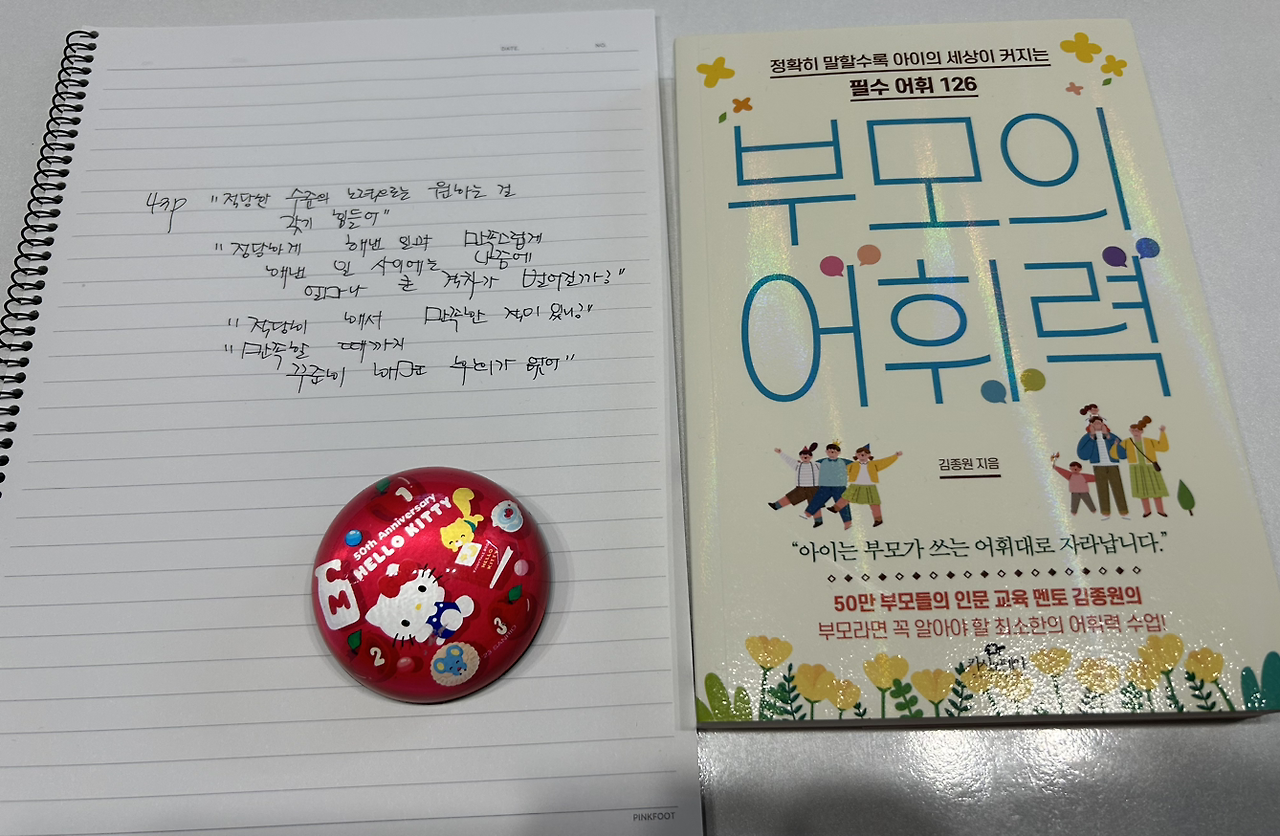 DATE. NO.
43p "적당한 수준의 노력으로는 원하는 걸
갖기 힘들어"
"적당하게 해낸 일과 만족스럽게
해낸 일 사이에는 나중에
얼마나 큰 격차가 벌어질까?"
"적당히 해서 만족한 적이 있니?"
"만족할 때까지
꾸준히 해본 후회가 없어"
50th Anniversary
HELLO KITTY
1
HELLO KITTY
M
2
3
PINKFOOT
정확히 말할수록 아이의 세상이 커지는
필수 어휘 126
부모의
어휘력
김종원 지음
"아이는 부모가 쓰는 어휘대로 자라납니다."
50만 부모들의 인문 교육 멘토 김종원의
부모라면 꼭 알아야 할 최소한의 어휘력 수업!